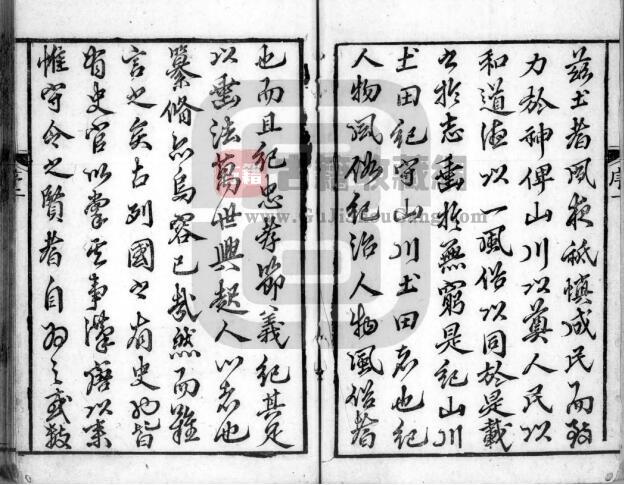 茲土者夙夜祗慎成民而致
力於神俾山川以奠人民以
和道德以一風俗以同於是載
之於志垂於無窮是紀山川
土田紀守山川土田者也紀
人物風俗紀治人物風俗者
序一
也而且紀忠孝節義紀其足
以垂法萬世興起人心者也
纂修亦烏容已哉然而難
言之矣古列國之有史也皆
有史官以掌其事漢唐以來
惟守令之賢者自為之或數
古籍
www.GuJiShouCang.com